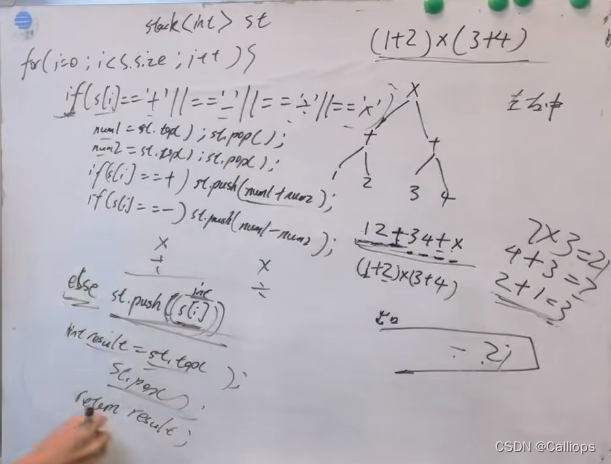 stack<int> st
for(i=0; i<s.size; i++){
if(s[i]=='+'||=='-'||=='÷'||=='x')
num1=st.top(); st.pop();
num2=st.top(); st.pop();
if(s[i]==+) st.push(num1+num2);
if(s[i]==-) st.push(num1-num2);
x
÷
x
÷
else st.push((int s[i]))
int result=st.top();
st.pop();
return result;
(1+2)×(3+4)
左右中
x
+ +
1 2 3 4
12+34+x
(1+2)×(3+4)
7×3=21
4+3=7
2+1=3
CSDN @Calliops